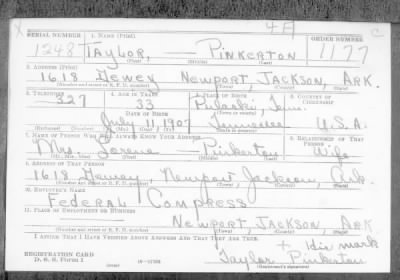 4A
C
SERIAL NUMBER 1. NAME (Print) ORDER NUMBER
1248 TAYLOR, — PINKERTON 1177
(First) (Middle) (Last)
2. ADDRESS (Print)
1618 Dewey Newport, JACKSON, ARK.
(Number and street or R. F. D. number) (Town) (County) (State)
3. TELEPHONE 4. AGE IN YEARS 5. PLACE OF BIRTH 6. COUNTRY OF CITIZENSHIP
327 33 Pulaski
DATE OF BIRTH (Town or county)
July 11 1907 Tennessee U.S.A.
(Exchange) (Number) (Mo.) (Day) (Yr.) (State or country)
7. NAME OF PERSON WHO WILL ALWAYS KNOW YOUR ADDRESS 8. RELATIONSHIP OF THAT PERSON
Mrs. — Pinkerton Wife
(Mr., Mrs., Miss) (First) (Middle) (Last)
9. ADDRESS OF THAT PERSON
1618 Dewey Newport Jackson, Ark.
(Number and street or R. F. D. number) (Town) (County) (State)
10. EMPLOYER'S NAME
Federal Compress
11. PLACE OF EMPLOYMENT OR BUSINESS
Newport, JACKSON, ARK
(Number and street or R. F. D. number) (Town) (County) (State)
I AFFIRM THAT I HAVE VERIFIED ABOVE ANSWERS AND THAT THEY ARE TRUE.
+ His mark
REGISTRATION CARD
D. S. S. Form 1 16—17105 Taylor Pinkerton
(Registrant's signature)